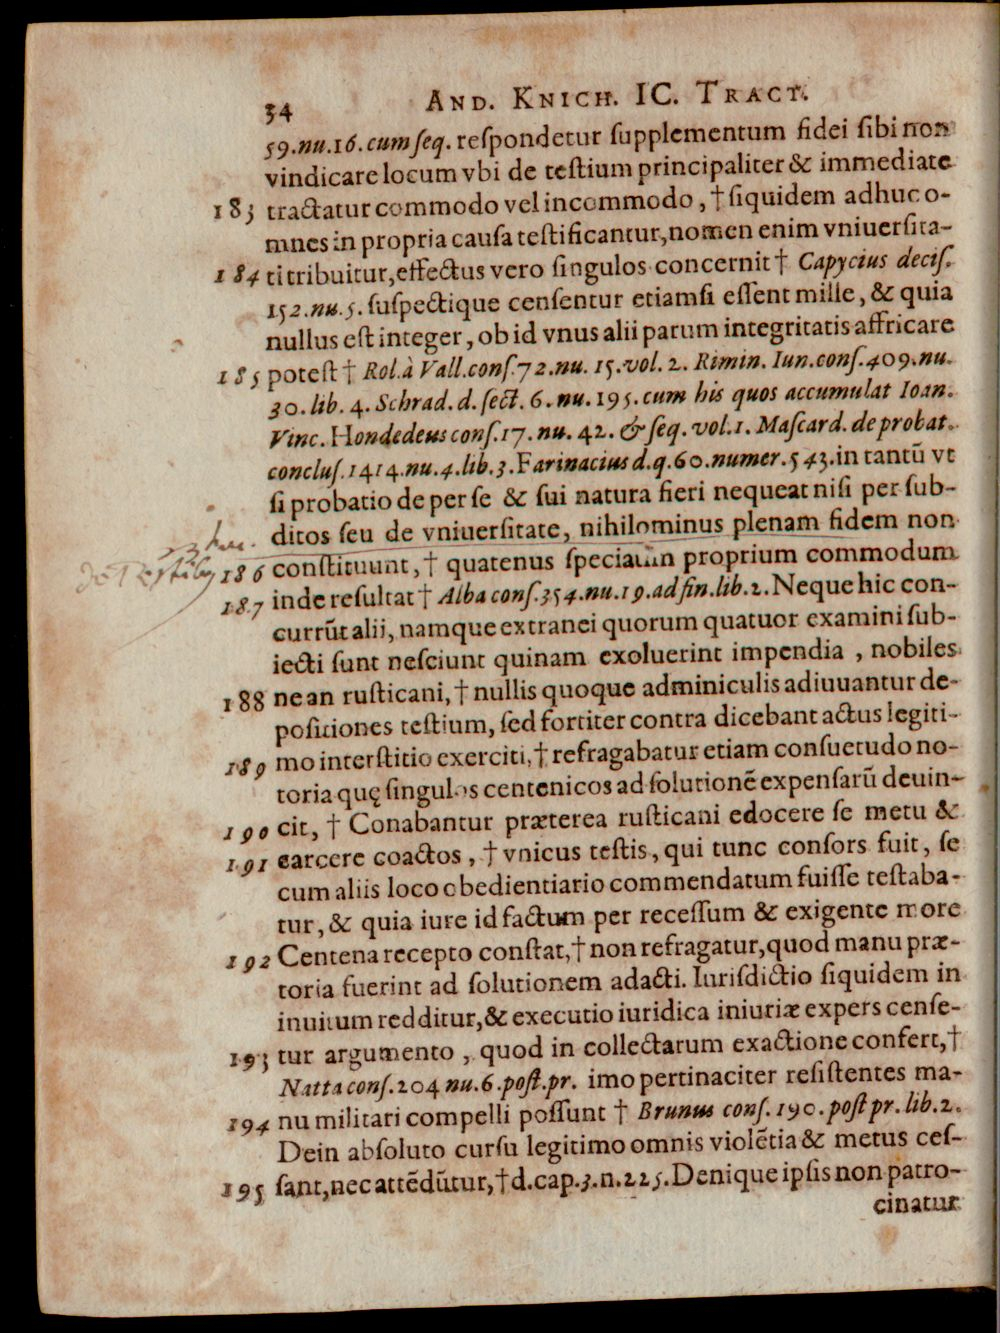 34 AND. KNICH. IC. TRACT.
59.nu.16.cum ſeq. reſpondetur ſupplementum fidei ſibi non
vindicare locum vbi de teſtium principaliter & immediate
183 tractatur commodo vel incommodo, † ſiquidem adhuc o-
mnes in propria cauſa teſtificantur, nomen enim vniuerſita-
184 ti tribuitur, effectus vero ſingulos concernit † Capycius deciſ.
152.nu.5. ſuſpectique cenſentur etiamſi eſſent mille, & quia
nullus eſt integer, ob id vnus alii parum integritatis affricare
185 poteſt † Rol.à Vall.conſ.72.nu. 15.vol. 2. Rimin. Iun.conſ.409.nu.
30. lib. 4. Schrad. d. ſect. 6. nu. 195. cum his quos accumulat Ioan.
Vinc. Hondedeus conſ.17. nu. 42. & ſeq. vol.1. Maſcard. de probat.
concluſ.1414.nu.4.lib.3.Farinacius d.q.60.numer.543.in tantū vt
ſi probatio de per ſe & ſui natura fieri nequeat niſi per ſub-
ditos ſeu de vniuerſitate, nihilominus plenam fidem non
de Teſtibus
186 conſtituunt, † quatenus ſpeciatim proprium commodum
187 inde reſultat † Alba conſ.354.nu.19.ad fin.lib.2. Neque hic con-
currūt alii, namque extranei quorum quatuor examini ſub-
iecti ſunt neſciunt quinam exoluerint impendia, nobiles
188 ne an ruſticani, † nullis quoque adminiculis adiuuantur de-
poſitiones teſtium, ſed fortiter contra dicebant actus legiti-
189 mo interſtitio exerciti, † refragabatur etiam conſuetudo no-
toria quę ſingulos centenicos ad ſolutionē expenſarū deuin-
190 cit, † Conabantur præterea ruſticani edocere ſe metu &
191 carcere coactos, † vnicus teſtis, qui tunc conſors fuit, ſe
cum aliis loco obedientiario commendatum fuiſſe teſtaba-
tur, & quia iure id factum per receſſum & exigente more
192 Centena recepto conſtat, † non refragatur, quod manu præ-
toria fuerint ad ſolutionem adacti. Iuriſdictio ſiquidem in
inuitum redditur, & executio iuridica iniuriæ expers cenſe-
193 tur argumento, quod in collectarum exactione confert, †
Natta conſ.204 nu.6.poſt.pr. imo pertinaciter reſiſtentes ma-
194 nu militari compelli poſſunt † Brunus conſ.190.poſt pr.lib.2.
Dein abſoluto curſu legitimo omnis violētia & metus ceſ-
195 ſant, nec attēdūtur, † d.cap.3.n.225. Denique ipſis non patro-
cinatur